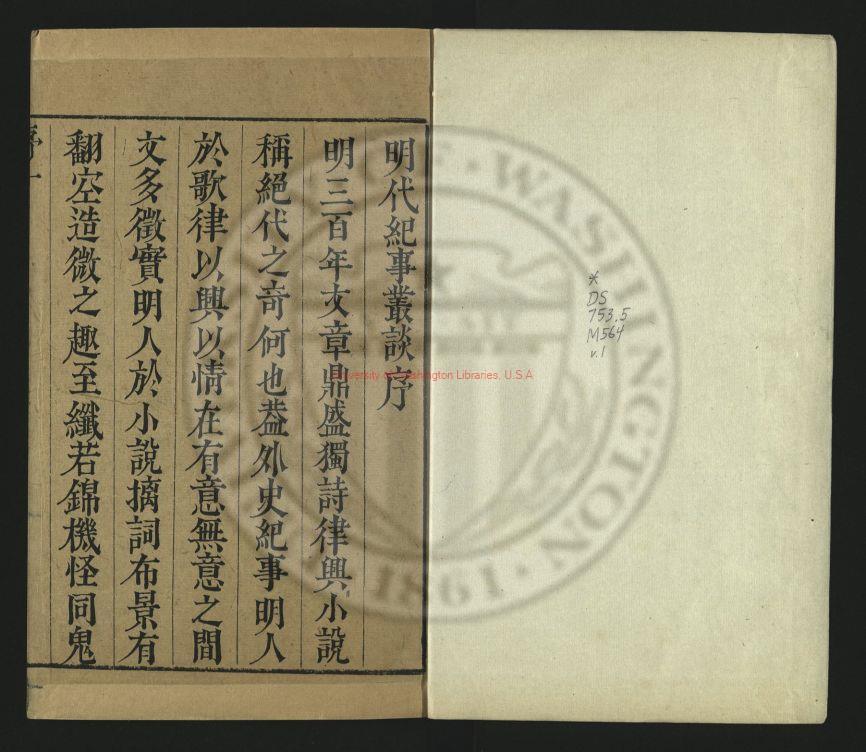 明代紀事叢談序
明三百年文章鼎盛獨詩律興小說
稱絕代之竒何也葢外史紀事明人
於歌律以興以情在有意無意之間
文多徵實明人於小說摛詞布景有
翻空造微之趣至纖若錦機怪同鬼
序一
*
DS
753.5
M564
v.1
University of Washington Libraries, U.S.A
WASHINGTON
1861